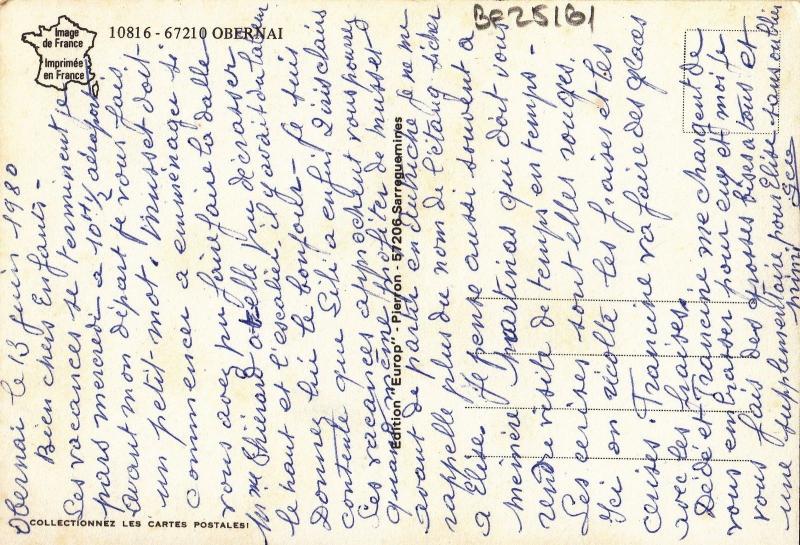 Image
de France
Imprimée
en France
10816 - 67210 OBERNAI
BE25161
Obernai le 13 Juin 1980
Bien chers Enfants -
Les vacances se terminent je
pars mercredi à 10H ½
avant mon départ je vous fais
un petit-mot. Musset doit-
commencer a emménager si
vous avez pu faire faire la dalle
Mme Thiérard a-t-elle pu décrasser
le haut et l'escalier. il y avait du
Donnez lui le bonjour - je suis
contente que Lili a enfin
Les vacances approchent vous pouvez
quand même profiter de Musset
avant de partir en Autriche je ne me
rappelle plus du nom de l'étang
a Elise. Je pense aussi souvent a
mémère Martinas qui doit vous
rendre visite de temps en temps -
Les cerises sont elles rouges.
Ici on récolte les fraises et les
cerises. Francine va faire des glaces
avec les fraises.
Dédé et Francine me chargent de
vous embrasser pour eux et moi je
vous fais des grosses bises a tous et
une supplémentaire pour Elise sans oublier
mimi
Edition "Europ" - Pierron - 57206 Sarreguemines
COLLECTIONNEZ LES CARTES POSTALES!